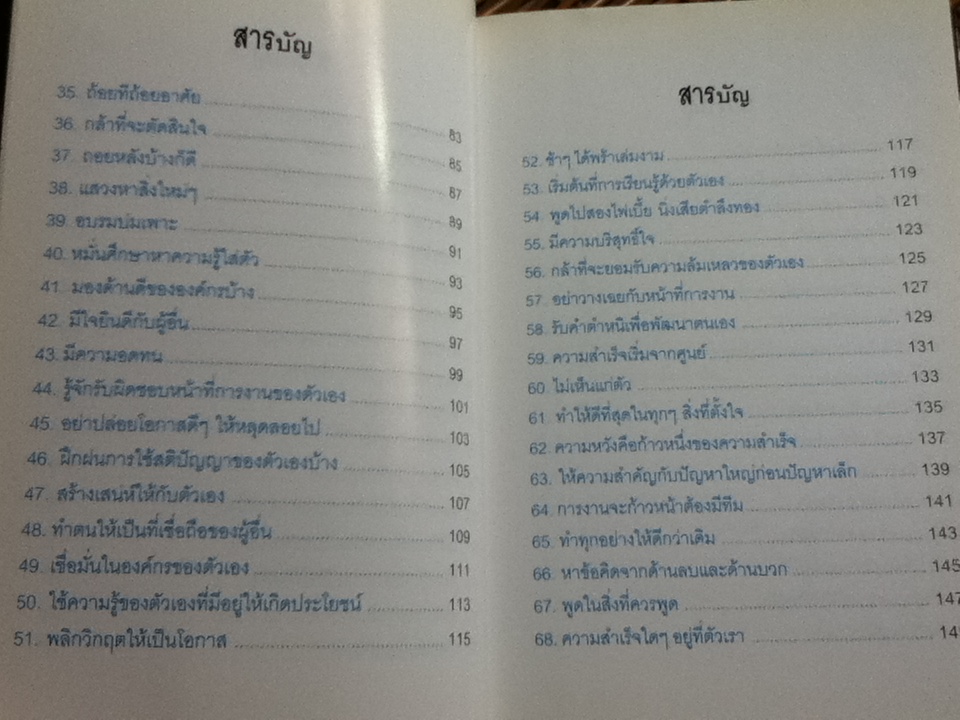 สารบัญ
35. ถ้อยทีถ้อยอาศัย 83
36. กล้าที่จะตัดสินใจ 85
37. ถอยหลังบ้างก็ดี 87
38. แสวงหาสิ่งใหม่ๆ 89
39. อบรมบ่มเพาะ 91
40. หมั่นศึกษาหาความรู้ใส่ตัว 93
41. มองด้านดีขององค์กรบ้าง 95
42. มีใจยินดีกับผู้อื่น 97
43. มีความอดทน 99
44. รู้จักรับผิดชอบหน้าที่การงานของตัวเอง 101
45. อย่าปล่อยโอกาสดีๆ ให้หลุดลอยไป 103
46. ฝึกฝนการใช้สติปัญญาของตัวเองบ้าง 105
47. สร้างเสน่ห์ให้กับตัวเอง 107
48. ทำตนให้เป็นที่เชื่อถือของผู้อื่น 109
49. เชื่อมั่นในองค์กรของตัวเอง 111
50. ใช้ความรู้ของตัวเองที่มีอยู่ให้เกิดประโยชน์ 113
51. พลิกวิกฤตให้เป็นโอกาส 115
สารบัญ
52. ช้าๆ ได้พร้าเล่มงาม 117
53. เริ่มต้นที่การเรียนรู้ด้วยตัวเอง 119
54. พูดไปสองไพเบี้ย นิ่งเสียตำลึงทอง 121
55. มีความบริสุทธิ์ใจ 123
56. กล้าที่จะยอมรับความล้มเหลวของตัวเอง 125
57. อย่าวางเฉยกับหน้าที่การงาน 127
58. รับคำตำหนิเพื่อพัฒนาตนเอง 129
59. ความสำเร็จเริ่มจากศูนย์ 131
60. ไม่เห็นแก่ตัว 133
61. ทำให้ดีที่สุดในทุกๆ สิ่งที่ตั้งใจ 135
62. ความหวังคือก้าวหนึ่งของความสำเร็จ 137
63. ให้ความสำคัญกับปัญหาใหญ่ก่อนปัญหาเล็ก 139
64. การงานจะก้าวหน้าต้องมีทีม 141
65. ทำทุกอย่างให้ดีกว่าเดิม 143
66. หาข้อคิดจากด้านลบและด้านบวก 145
67. พูดในสิ่งที่ควรพูด 147
68. ความสำเร็จใดๆ อยู่ที่ตัวเรา